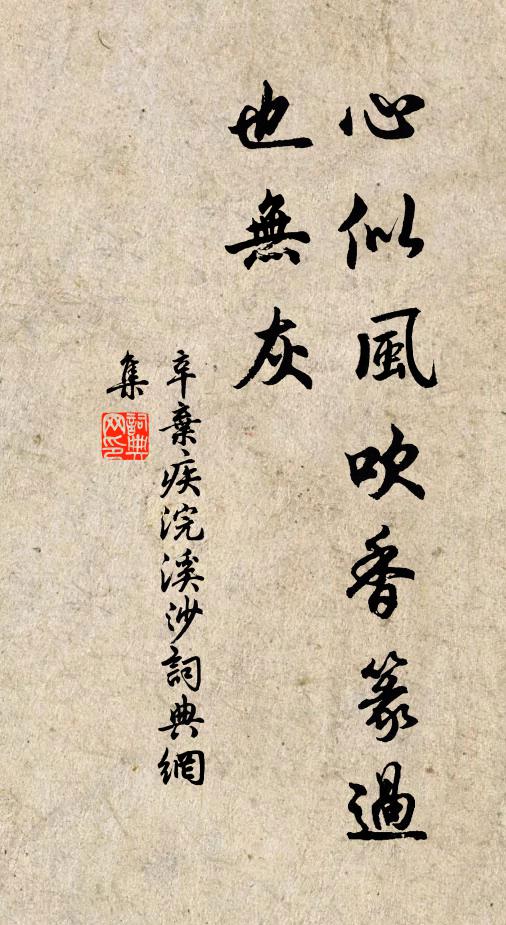 心似風吹香篆過
也無灰
辛棄疾浣溪沙詞典網
集
詞典
网印